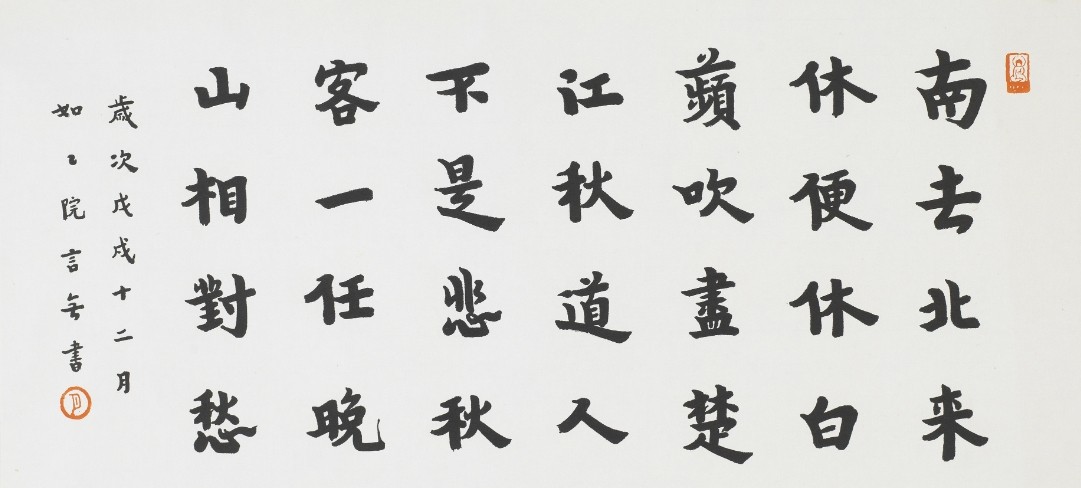 南去北来
休便休白
蘋吹盡楚
江秋道人
不是悲秋
客一任晚
山相對愁
歲次戊戌十二月
如是院言無書